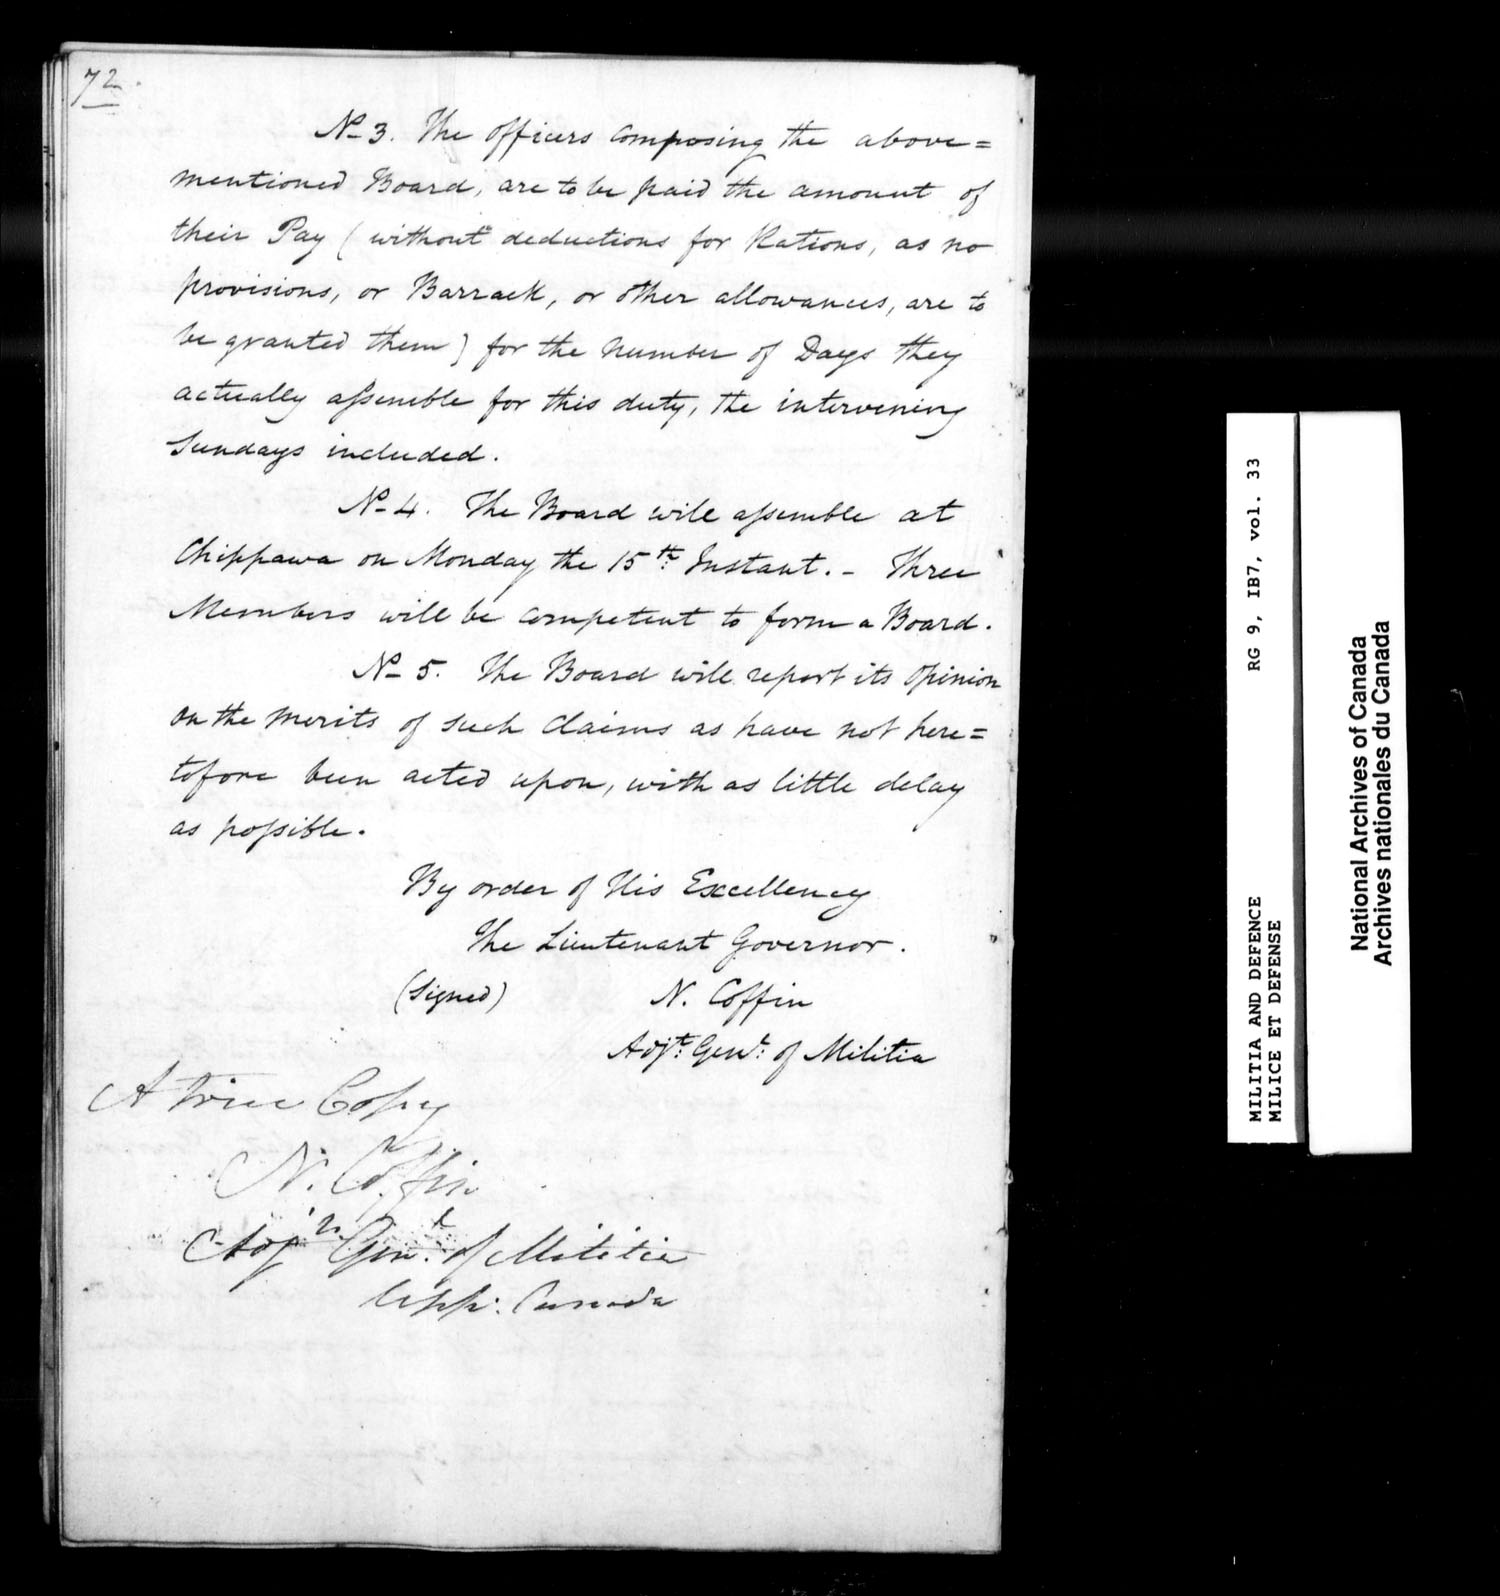 72
No 3. The officers composing the above=
mentioned Board, are to be paid the amount of
their Pay (without deductions for Rations, as no
provisions, or Barrack, or other allowances, are to
be granted them) for the number of Days they
actually assemble for this duty, the intervening
Sundays included.
No 4. The Board will assemble at
Chippawa on Monday the 15th Instant. - Three
Members will be competent to form a Board.
No 5. The Board will report its opinion
on the merits of such Claims as have not here=
tofore been acted upon, with as little delay
as possible.
By order of His Excellency
The Lieutenant Governor.
(Signed) N. Coffin
Adjt: Genl: of Militia
A true Copy
N. Coffin
Adjt Genl. of Militia
Upp: Canada
MILITIA AND DEFENCE RG 9, IB7, vol. 33
MILICE ET DEFENSE
National Archives of Canada
Archives nationales du Canada